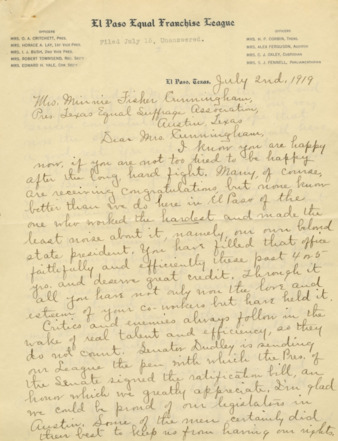 El Paso Equal Franchise League
OFFICERS
OFFICERS
Filed July 16, Unanswered.
El Paso, Texas, July 2nd, 1919
Mrs. Minnie Fisher Cunningham,
Pres Texas Equal Suffrage Association,
Austin, Texas
Dear Mrs Cunningham,
I know you are happy
now, if you are not too tired to be happy
after the long hard fight. Many, of course,
are receiving congratulations, but none know
better than we do here in El Paso of the
one who worked the hardest and made the
least noise about it, namely, our own beloved
state president. You have filled that office
faithfully and efficiently these past 4 or 5
yrs. and deserve great credit. Through it
all you have not only won the love and
esteem of your co-workers but have held it.
Critics and enemies always follow in the
wake of real talent and efficiency, so they
do not count. Senator Dudley is sending
our League the pen with which the Pres. of
the Senate signed the ratification bill, an
honor which we greatly appreciate. I'm glad
we could be proud of our legislators in
Austin. Some of the men certainly did
their best to keep us from having our rights